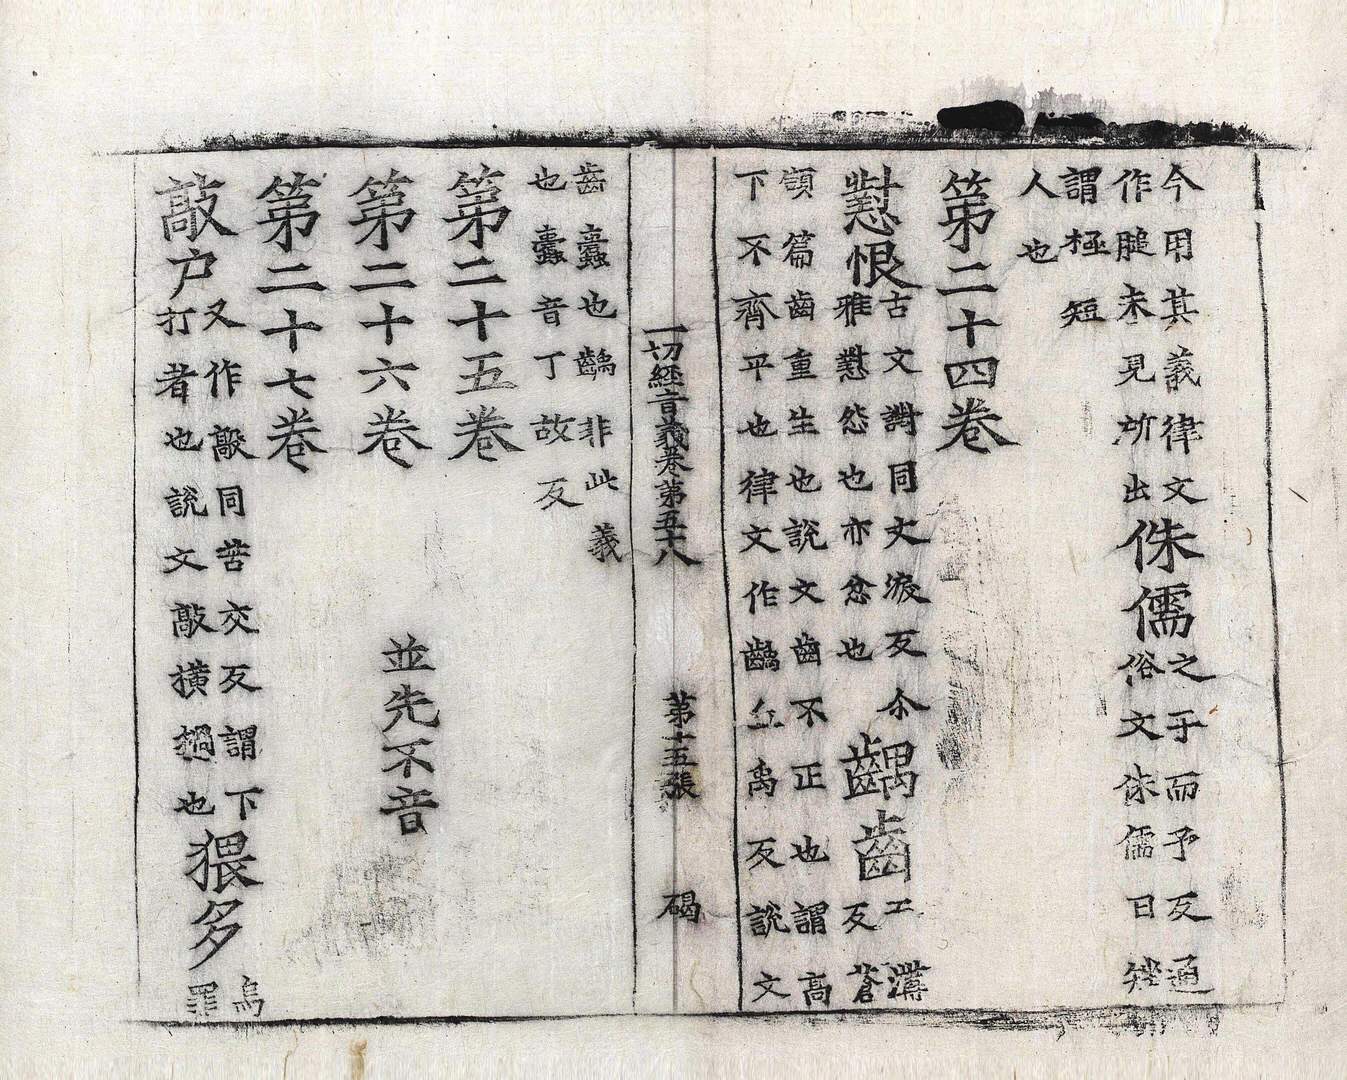 今用其義律文
作膇未見所出
侏儒
之于而予反通
俗文侏儒曰矬
謂極短
人也
第二十四卷
懟恨
古文對同丈淚反尒
雅懟怨也亦忿也
齵齒
工溝
反蒼
頡篇齒重生也說文齒不正也謂高
下不齊平也律文作齲丘禹反說文
一切經音義卷第五十八 第十五張 碣
齒蠹也齲非此義
也蠹音丁故反
第二十五卷
第二十六卷 並先不音
第二十七卷
敲户
又作毃同苦交反謂下
打者也說文敲橫撾也
猥多
烏
罪